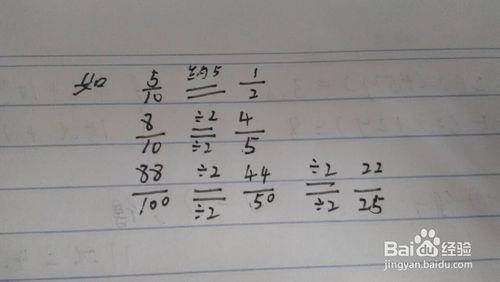 如 5/10 ≡约5 1/2
8/10 ÷2 = ÷2 4/5
88/100 ÷2 = ÷2 44/50 ÷2 = ÷2 22/25
Baidu 经验
jingyan.baidu.com